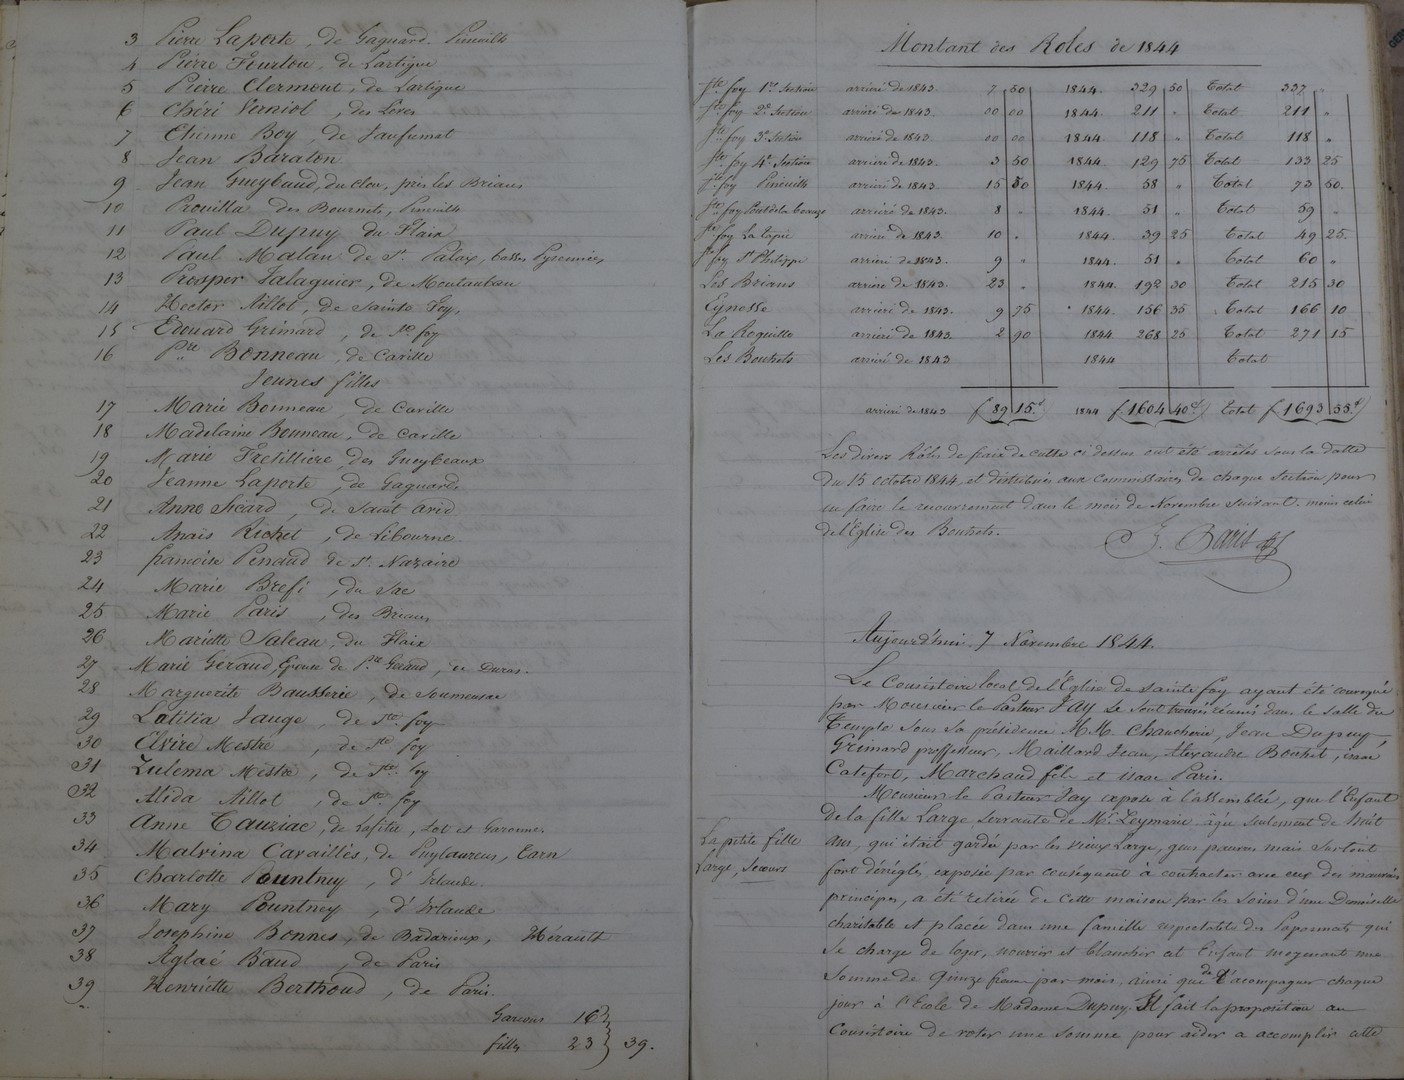 3 Pierre Laporte, de Gaguard. Pineuilh
4 Pierre Feurtou, de Lartigue
5 Pierre Clermont, de Lartigue
6 Chéri Verniol, des Lèves
7 Etienne Boy, de Jaufumat
8 Jean Baraton
9 Jean Gueybaud, du clou, près les Briaus
10 Prouilla des Bournets, Pineuilh
11 Paul Dupuy du Flaix
12 Paul Malan de St. Palaix, basses Pyrennées
13 Prosper Falaguier, de Montauban
14 Hector Nillot, de Sainte Foy.
15 Edouard Grimard, de Ste foy
16 Pre Bonneau, de Carille
Jeunes filles
17 Marie Bonneau, de Carille
18 Madelaine Bonneau, de Carille
19 Marie Fretillière, des Gueybeaux
20 Jeanne Laporte, de Gaguard.
21 Anne Sicard, de Saint Avid
22 Anaïs Richet, de Libourne.
23 françoise Penaud de St. Nazaire
24 Marie Brefi, du Sac
25 Marie Paris, des Briaus
26 Mariette Saleau, du Flaix
27 Marie Géraud, Epouse de Pre Géraud, de Duras.
28 Marguerite Bausserie, de Soumensac
29 Latitia Jauge, de Ste foy
30 Elvire Mestre, de Ste foy
31 Zulema Mestre, de Ste foy
32 Alida Nillot, de Ste foy
33 Anne Tauziac, de Lafitte, Lot et Garonne.
34 Malvina Cavaillès, de Puylaurens, Tarn
35 Charlotte Pountney, d'Irlande.
36 Mary Pountney, d'Irlande
37 Josephine Bonnes, de Bédarieux, Hérault
38 Aglaé Baud, de Paris
39 Henriette Berthoud, de Paris.
Garçons 16
filles 23 } 39.
Montant des Roles de 1844
Ste foy 1re Section arrieré de 1843. 7 50 1844. 329 50 Total 337 "
Ste foy 2e Section arrieré de 1843. 00 00 1844. 211 " Total 211 "
Ste foy 3e Section arrieré de 1843. 00 00 1844 118 " Total 118 "
Ste foy 4e Section arrieré de 1843. 3 50 1844. 129 75 Total 133 25
Ste foy Pineuilh arrieré de 1843. 15 50 1844. 58 " Total 73 50.
Ste foy Pont de la beauze arrieré de 1843. 8 " 1844. 51 " Total 59 "
Ste foy La Tapie arrieré de 1843. 10 " 1844. 39 25 Total 49 25.
Ste foy St Philippe arrieré de 1843. 9 " 1844. 51 " Total 60 "
Les Briaus arrieré de 1843. 23 " 1844. 192 30 Total 215 30
Eynesse arrieré de 1843. 9 75 1844. 156 35 Total 166 10
La Roquille arrieré de 1843. 2 90 1844. 268 25 Total 271 15
Les Bouhets arrieré de 1843 1844 Total
arrieré de 1843 f 89 15c 1844 f 1604 40c Total f 1693 55c
Les divers Rôles de frais de culte ci dessus ont été arrêtés sous la datte
du 15 octobre 1844, et distribués aux Commissaires de chaque Section pour
en faire le recouvrement dans le mois de Novembre suivant. moins celui
de l'Eglise des Bouhets.
J. Paris
Aujourd'hui 7 Novembre 1844.
Le Consistoire local de l'Eglise de Sainte foy ayant été convoqué
par Monsieur le Pasteur Jay se sont trouvés réunis dans la salle du
Temple sous sa présidence M.M. Chaucherie, Jean Dupuy
Grimard proffesseur, Maillard Jean, Alexandre Bouhet, isaac
Catefort, Marchand fils et isaac Paris.
Monsieur le Pasteur Jay expose à l'assemblée, que l'Enfant
de la fille Large Servante de Mr. Leymarie âgée seulement de huit
La petite fille
Large, Secours
ans, qui était gardée par les vieux Large, gens pauvres mais surtout
fort dérèglés, exposée par conséquent à contracter avec eux des mauvais
principes, a été retirée de cette maison par les soins d'une Demoiselle
charitable et placée dans une famille respectable des Saponnats qui
se charge de loger, nourrir et blanchir cet Enfant moyenant une
Somme de Quinze francs par mois, ainsi que de l'acompagner chaque
jour à l'Ecole de Madame Dupuy. Il fait la proposition au
Consistoire de voter une somme pour aider a accomplir cette